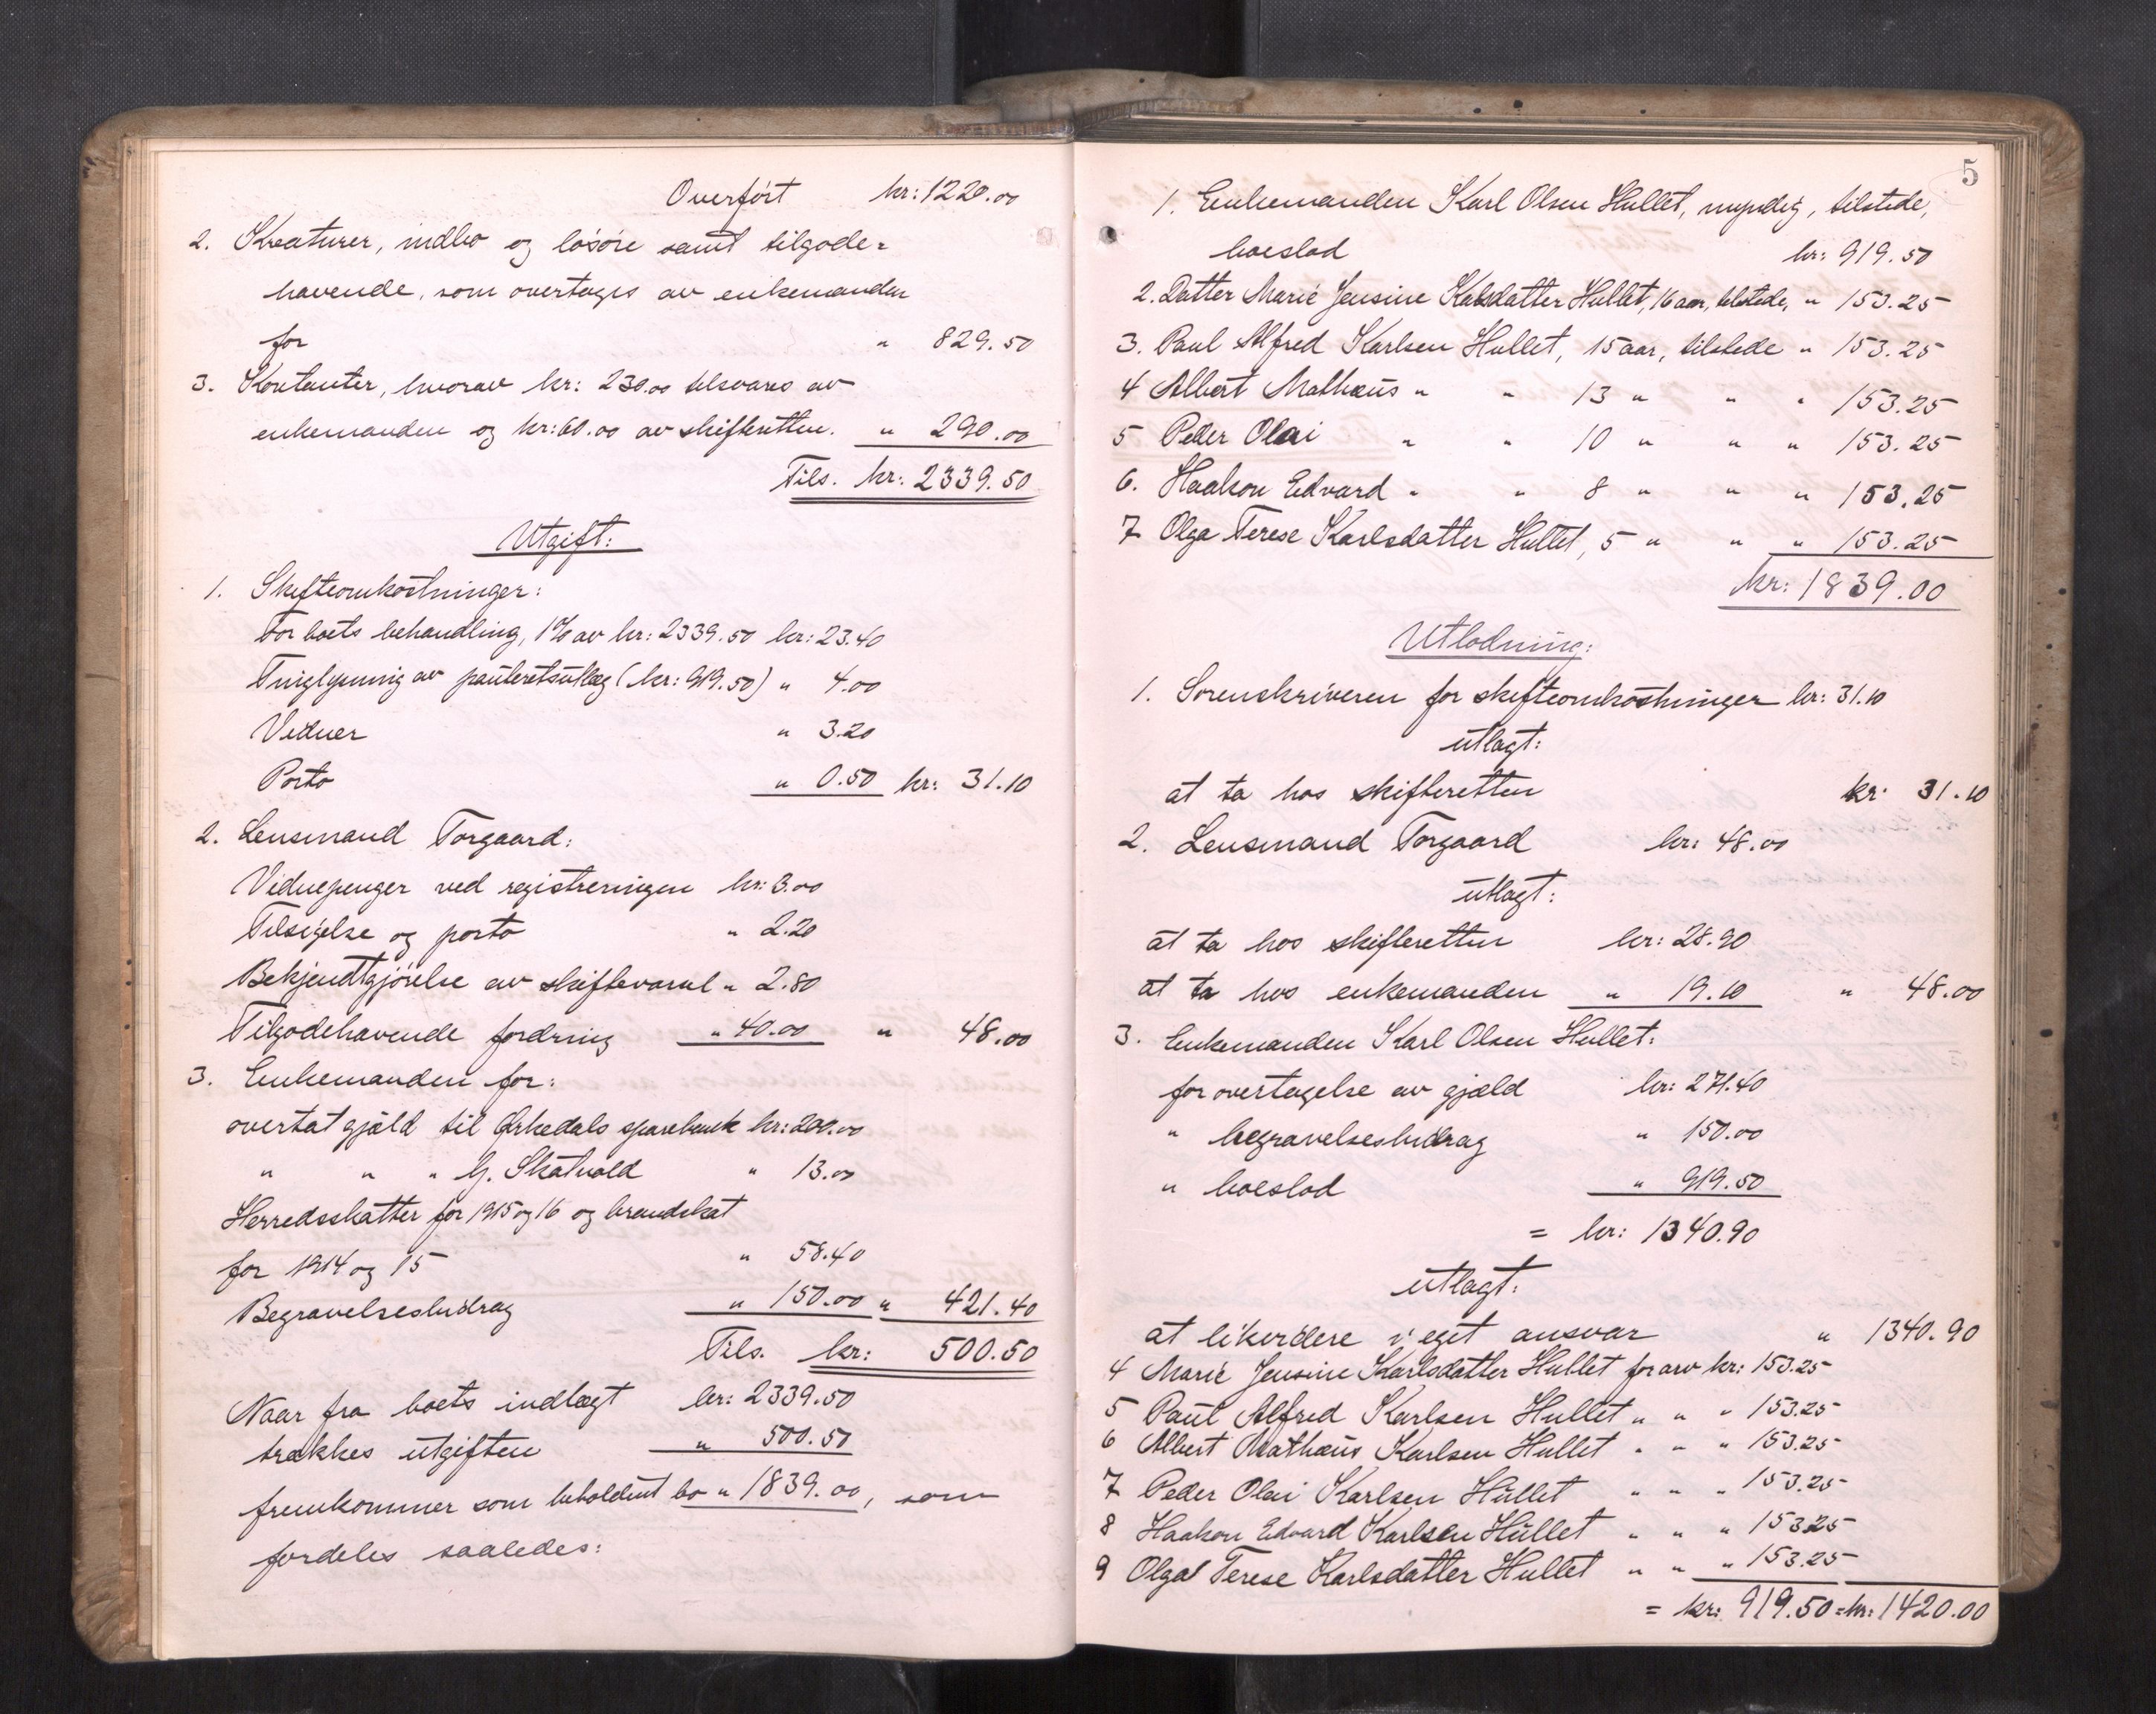 Overført kr: 1220.00
2. Kreaturer, indbo og løsøre samt tilgode-
havende, som overtages av enkemanden
for " 829.50
3. Kontanter, hvorav kr: 230.00 tilsvares av
enkemanden og kr: 60.00 av skifteretten. " 290.00
Tils. kr: 2339.50
Utgift:
1. Skifteomkostninger:
For boets behandling, 1% av kr: 2339.50 kr: 23.40
Tinglysning av panteretsutlæg (kr: 919.50) " 4.00
Vidner " 3.20
Porto " 0.50 kr: 31.10
2. Lensmand Torgaard:
Vidnepenger ved registreringen kr: 3.00
Tilsigelse og porto " 2.20
Bekjendtgjørelse av skiftevarsel " 2.80
Tilgodehavende fordring " 40.00 " 48.00
3. Enkemanden for:
overtat gjæld til Ørkedals sparebank kr: 200.00
" " " G. Skatvold " 13.00
Herredsskatter for 1915 og 16 og brandskat
for 1914 og 15 " 58.40
Begravelsesbidrag " 150.00 " 421.40
Tils. kr: 500.50
Naar fra boets indtægt kr: 2339.50
trækkes utgiften " 500.50
fremkommer som beholdent bo " 1839.00, som
fordeles saaledes:
5
1. Enkemanden Karl Olsen Hullet, myndig, tilstede,
boeslod kr: 919.50
2. Datter Marie Jensine Kalsdatter Hullet, 16 aar, tilstede, " 153.25
3. Paul Alfred Karlsen Hullet, 15 aar, tilstede " 153.25
4 Albert Mathæus " " 13 " " " 153.25
5 Peder Olai " " 10 " " " 153.25
6. Haakon Edvard " " 8 " " " 153.25
7 Olga Terese Karlsdatter Hullet, 5 " " " 153.25
kr: 1839.00
Utlodning:
1. Sorenskriveren for skifteomkostninger kr: 31.10
utlagt:
at ta hos skifteretten kr. 31.10
2. Lensmand Torgaard kr: 48.00
utlagt:
at ta hos skifteretten kr: 28.90
at ta hos enkemanden " 19.10 " 48.00
3. Enkemanden Karl Olsen Hullet:
for overtagelse av gjæld kr: 271.40
" begravelsesbidrag " 150.00
" boeslod " 919.50
= kr: 1340.90
utlagt:
at likvidere i eget ansvar " 1340.90
4 Marie Jensine Karlsdatter Hullet for arv kr: 153.25
5 Paul Alfred Karlsen Hullet " " " 153.25
6 Albert Mathæus Karlsen Hullet " " " 153.25
7 Peder Olai Karlsen Hullet " " " 153.25
8 Haakon Edvard Karlsen Hullet " " " 153.25
9 Olga Terese Karlsdatter Hullet " " " 153.25
= kr: 919.50 = kr: 1420.00